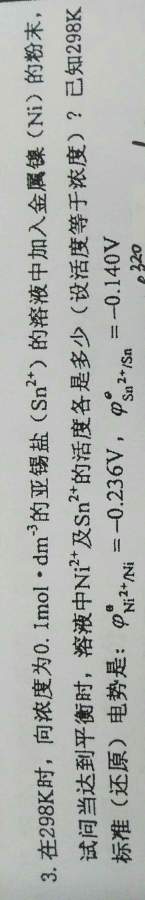 3. 在298K时，向浓度为0.1mol·dm⁻³的亚锡盐（Sn²⁺）的溶液中加入金属镍（Ni）的粉末，
试问当达到平衡时，溶液中Ni²⁺及Sn²⁺的活度各是多少（设活度等于浓度）？已知298K
标准（还原）电势是：φ°Ni²⁺/Ni =−0.236V，φ°Sn²⁺/Sn =−0.140V